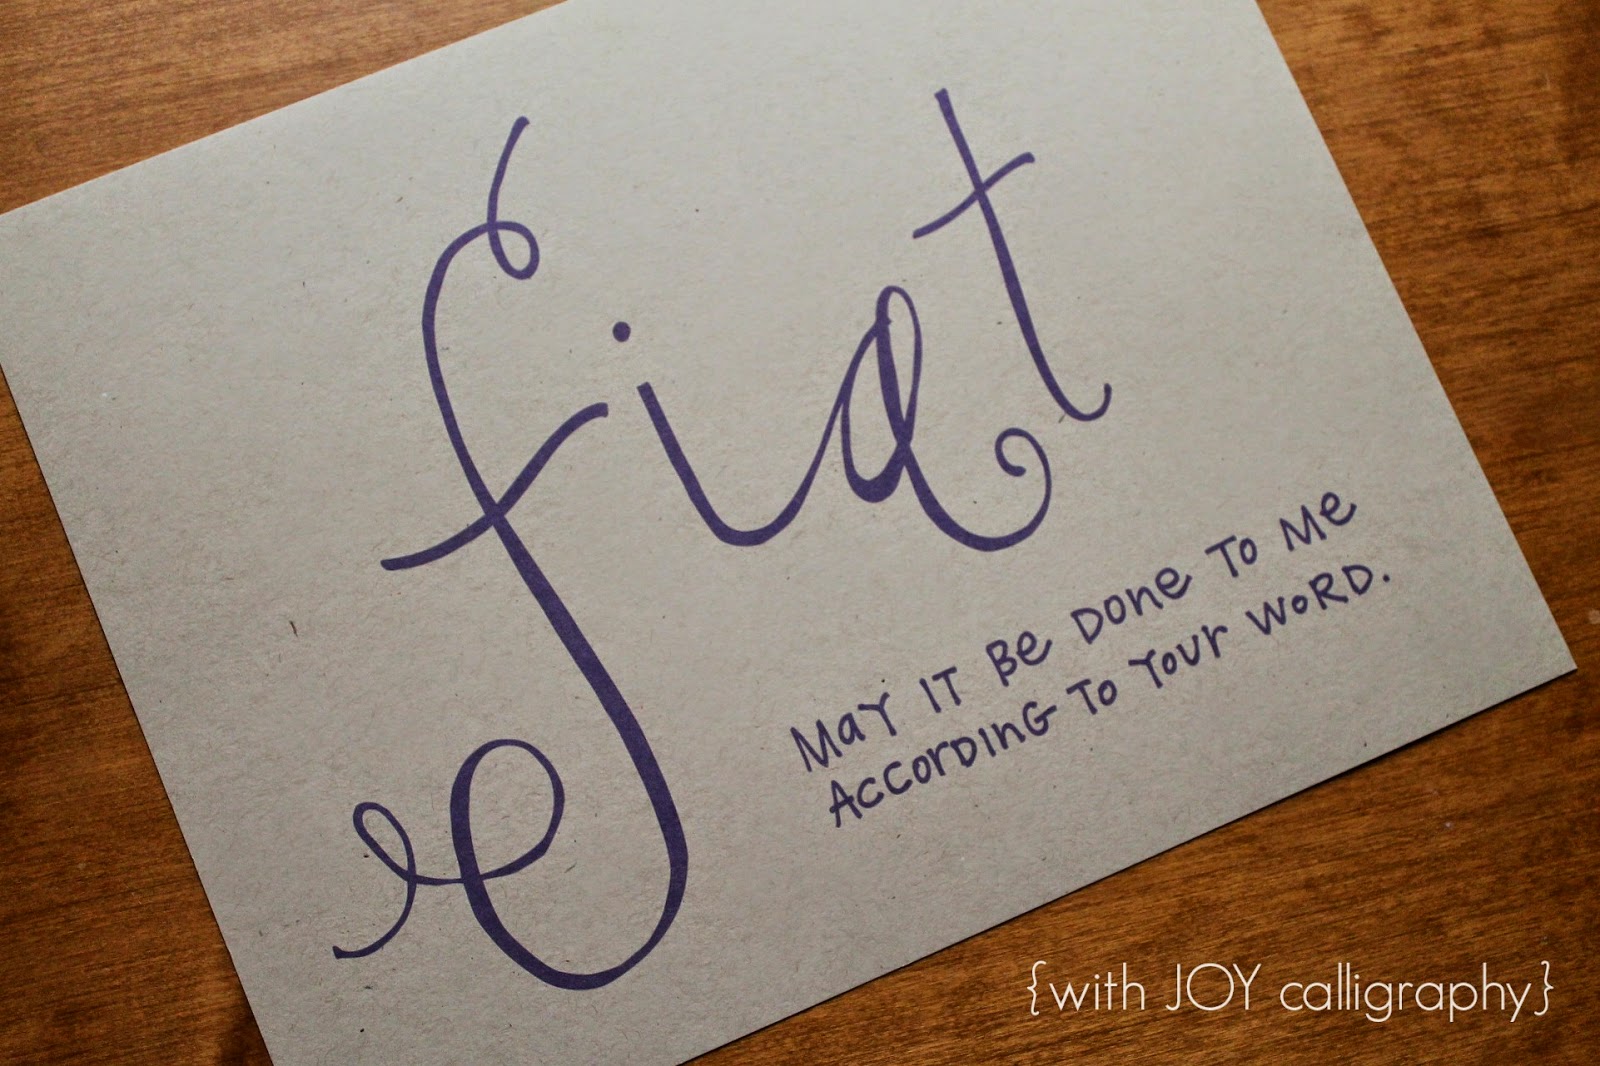 fiat
MAY IT BE DONE TO ME
ACCORDING TO YOUR WORD.
{with JOY calligraphy}